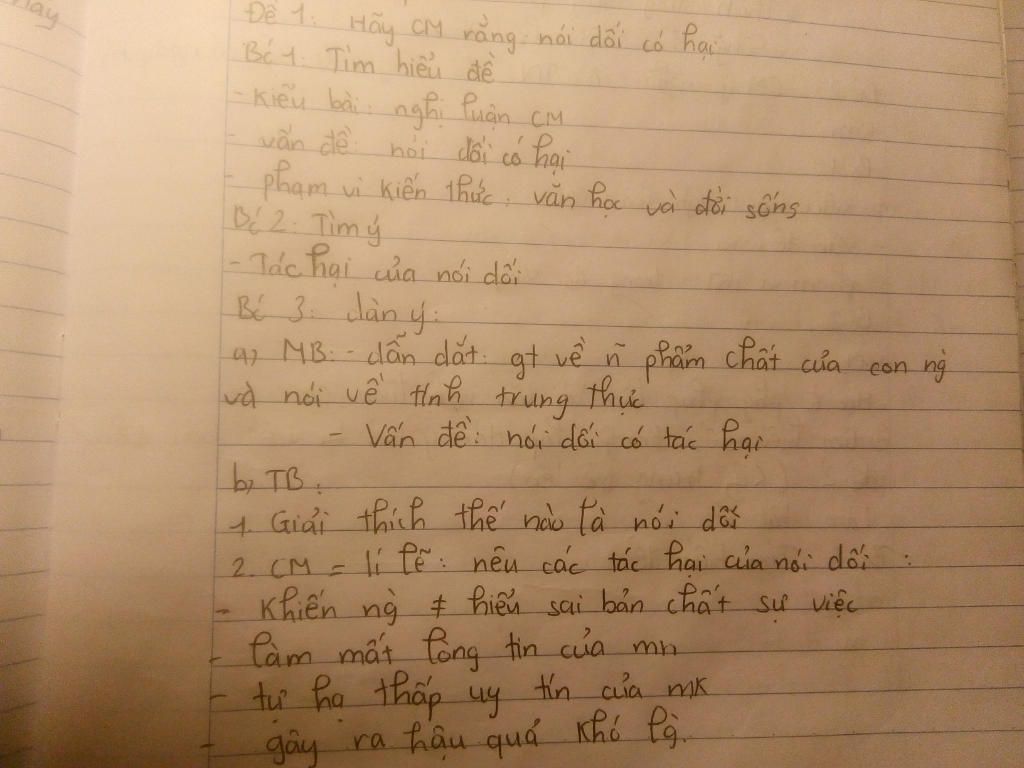 Đề 1: Hãy CM rằng nói dối có hại
Bc 1: Tìm hiểu đề
- Kiểu bài: nghị luận CM
- vấn đề: nói dối có hại
- phạm vi kiến thức: văn học và đời sống
Bc 2: Tìm ý
- Tác hại của nói dối
Bc 3: dàn ý:
a, MB: - dẫn dắt: gt về ñ phẩm chất của con ng̀
và nói về tính trung thực
- Vấn đề: nói dối có tác hại
b, TB:
1. Giải thích thế nào là nói dối
2. CM = lí lẽ: nêu các tác hại của nói dối:
- Khiến ng̀ ≠ hiểu sai bản chất sự việc
- làm mất lòng tin của mn
- tự hạ thấp uy tín của mk
- gây ra hậu quả khó lg̀.